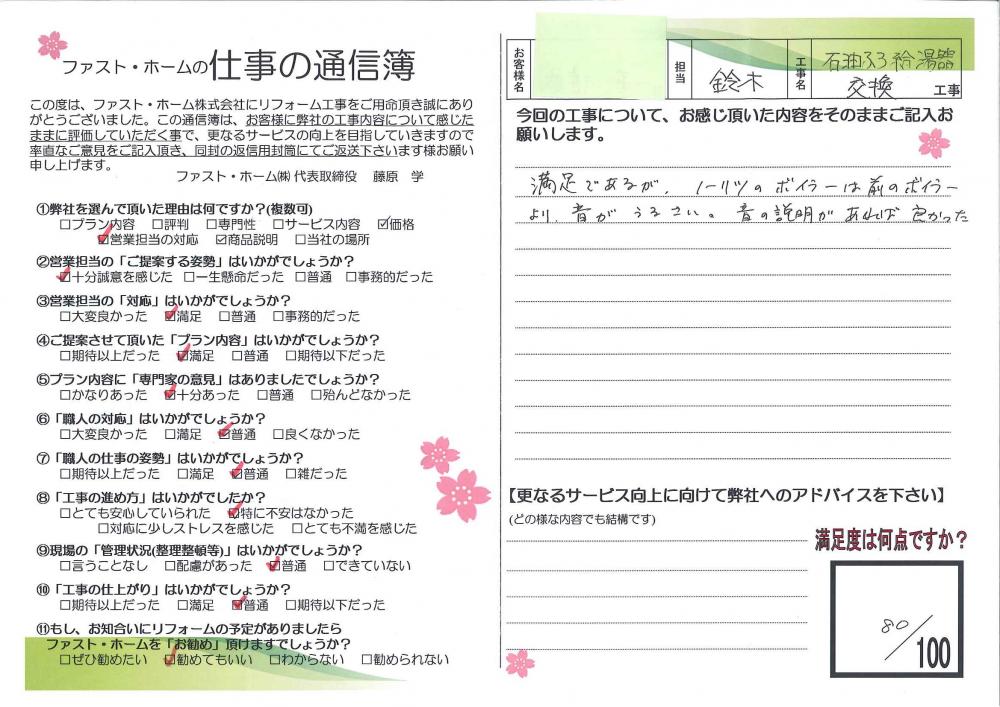 ファスト・ホームの仕事の通信簿
この度は、ファスト・ホーム株式会社にリフォーム工事をご用命頂き誠にあり
がとうございました。この通信簿は、お客様に弊社の工事内容について感じた
ままに評価していただく事で、更なるサービスの向上を目指していきますので
率直なご意見をご記入頂き、同封の返信用封筒にてご返送下さいます様お願い
申し上げます。
ファスト・ホーム㈱ 代表取締役 藤原 学
①弊社を選んで頂いた理由は何ですか？(複数可)
□プラン内容 □評判 □専門性 □サービス内容 ☑価格
☑営業担当の対応 ☑商品説明 □当社の場所
②営業担当の「ご提案する姿勢」はいかがでしょうか？
☑十分誠意を感じた □一生懸命だった □普通 □事務的だった
③営業担当の「対応」はいかがでしょうか？
□大変良かった ☑満足 □普通 □事務的だった
④ご提案させて頂いた「プラン内容」はいかがでしょうか？
□期待以上だった ☑満足 □普通 □期待以下だった
⑤プラン内容に「専門家の意見」はありましたでしょうか？
□かなりあった ☑十分あった □普通 □殆んどなかった
⑥「職人の対応」はいかがでしょうか？
□大変良かった □満足 ☑普通 □良くなかった
⑦「職人の仕事の姿勢」はいかがでしょうか？
□期待以上だった □満足 ☑普通 □雑だった
⑧「工事の進め方」はいかがでしたか？
□とても安心していられた ☑特に不安はなかった
□対応に少しストレスを感じた □とても不満を感じた
⑨現場の「管理状況(整理整頓等)」はいかがでしょうか？
□言うことなし □配慮があった ☑普通 □できていない
⑩「工事の仕上がり」はいかがでしょうか？
□期待以上だった □満足 ☑普通 □期待以下だった
⑪もし、お知合いにリフォームの予定がありましたら
ファスト・ホームを「お勧め」頂けますでしょうか？
□ぜひ勧めたい ☑勧めてもいい □わからない □勧められない
お客様名 担当 鈴木 工事名 石油ふろ給湯器
交換 工事
今回の工事について、お感じ頂いた内容をそのままご記入お
願いします。
満足であるが、ノーリツのボイラーは前のボイラー
より、音がうるさい。音の説明があれば良かった
【更なるサービス向上に向けて弊社へのアドバイスを下さい】
(どの様な内容でも結構です)
満足度は何点ですか？
80/100